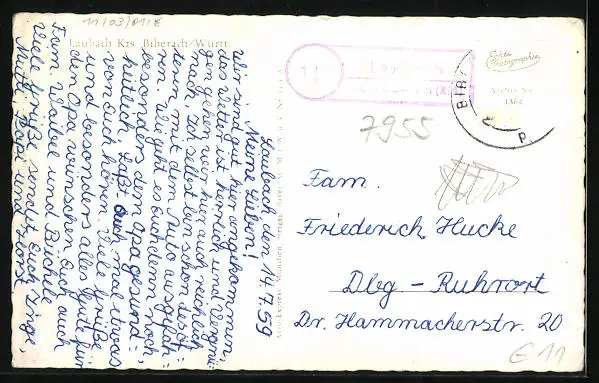 11/03/018
Laubach Krs. Biberach/Württ.
Laubach den 14.7.59
Meine Lieben!
Wir sind gut hier angekommen,
das Wetter ist herrlich und Vergnü-
gen gehen wir hier auch reichlich
nach. Ich selbst bin schon
mit dem Auto ausgefah-
ren. Wie geht es Euch denn noch,
besonders dem Opa gesund-
heitlich. Laßt auch mal etwas
von Euch hören. Viele Grüße
und besonders alles Gute für
den Opa wünschen Euch auch
Fam. Waibel und Büchele
Viele Grüße sendet Euch Inge,
Mutti, Papi und Horst
Echte
Photographie
Archiv Nr.
1364
BIB
7955
Fam.
Friederich Hucke
Dbg - Ruhrort
Dr. Hammacherstr. 20
€ 11